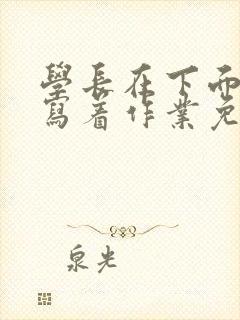 學長在下面
寫着作業免
泉光